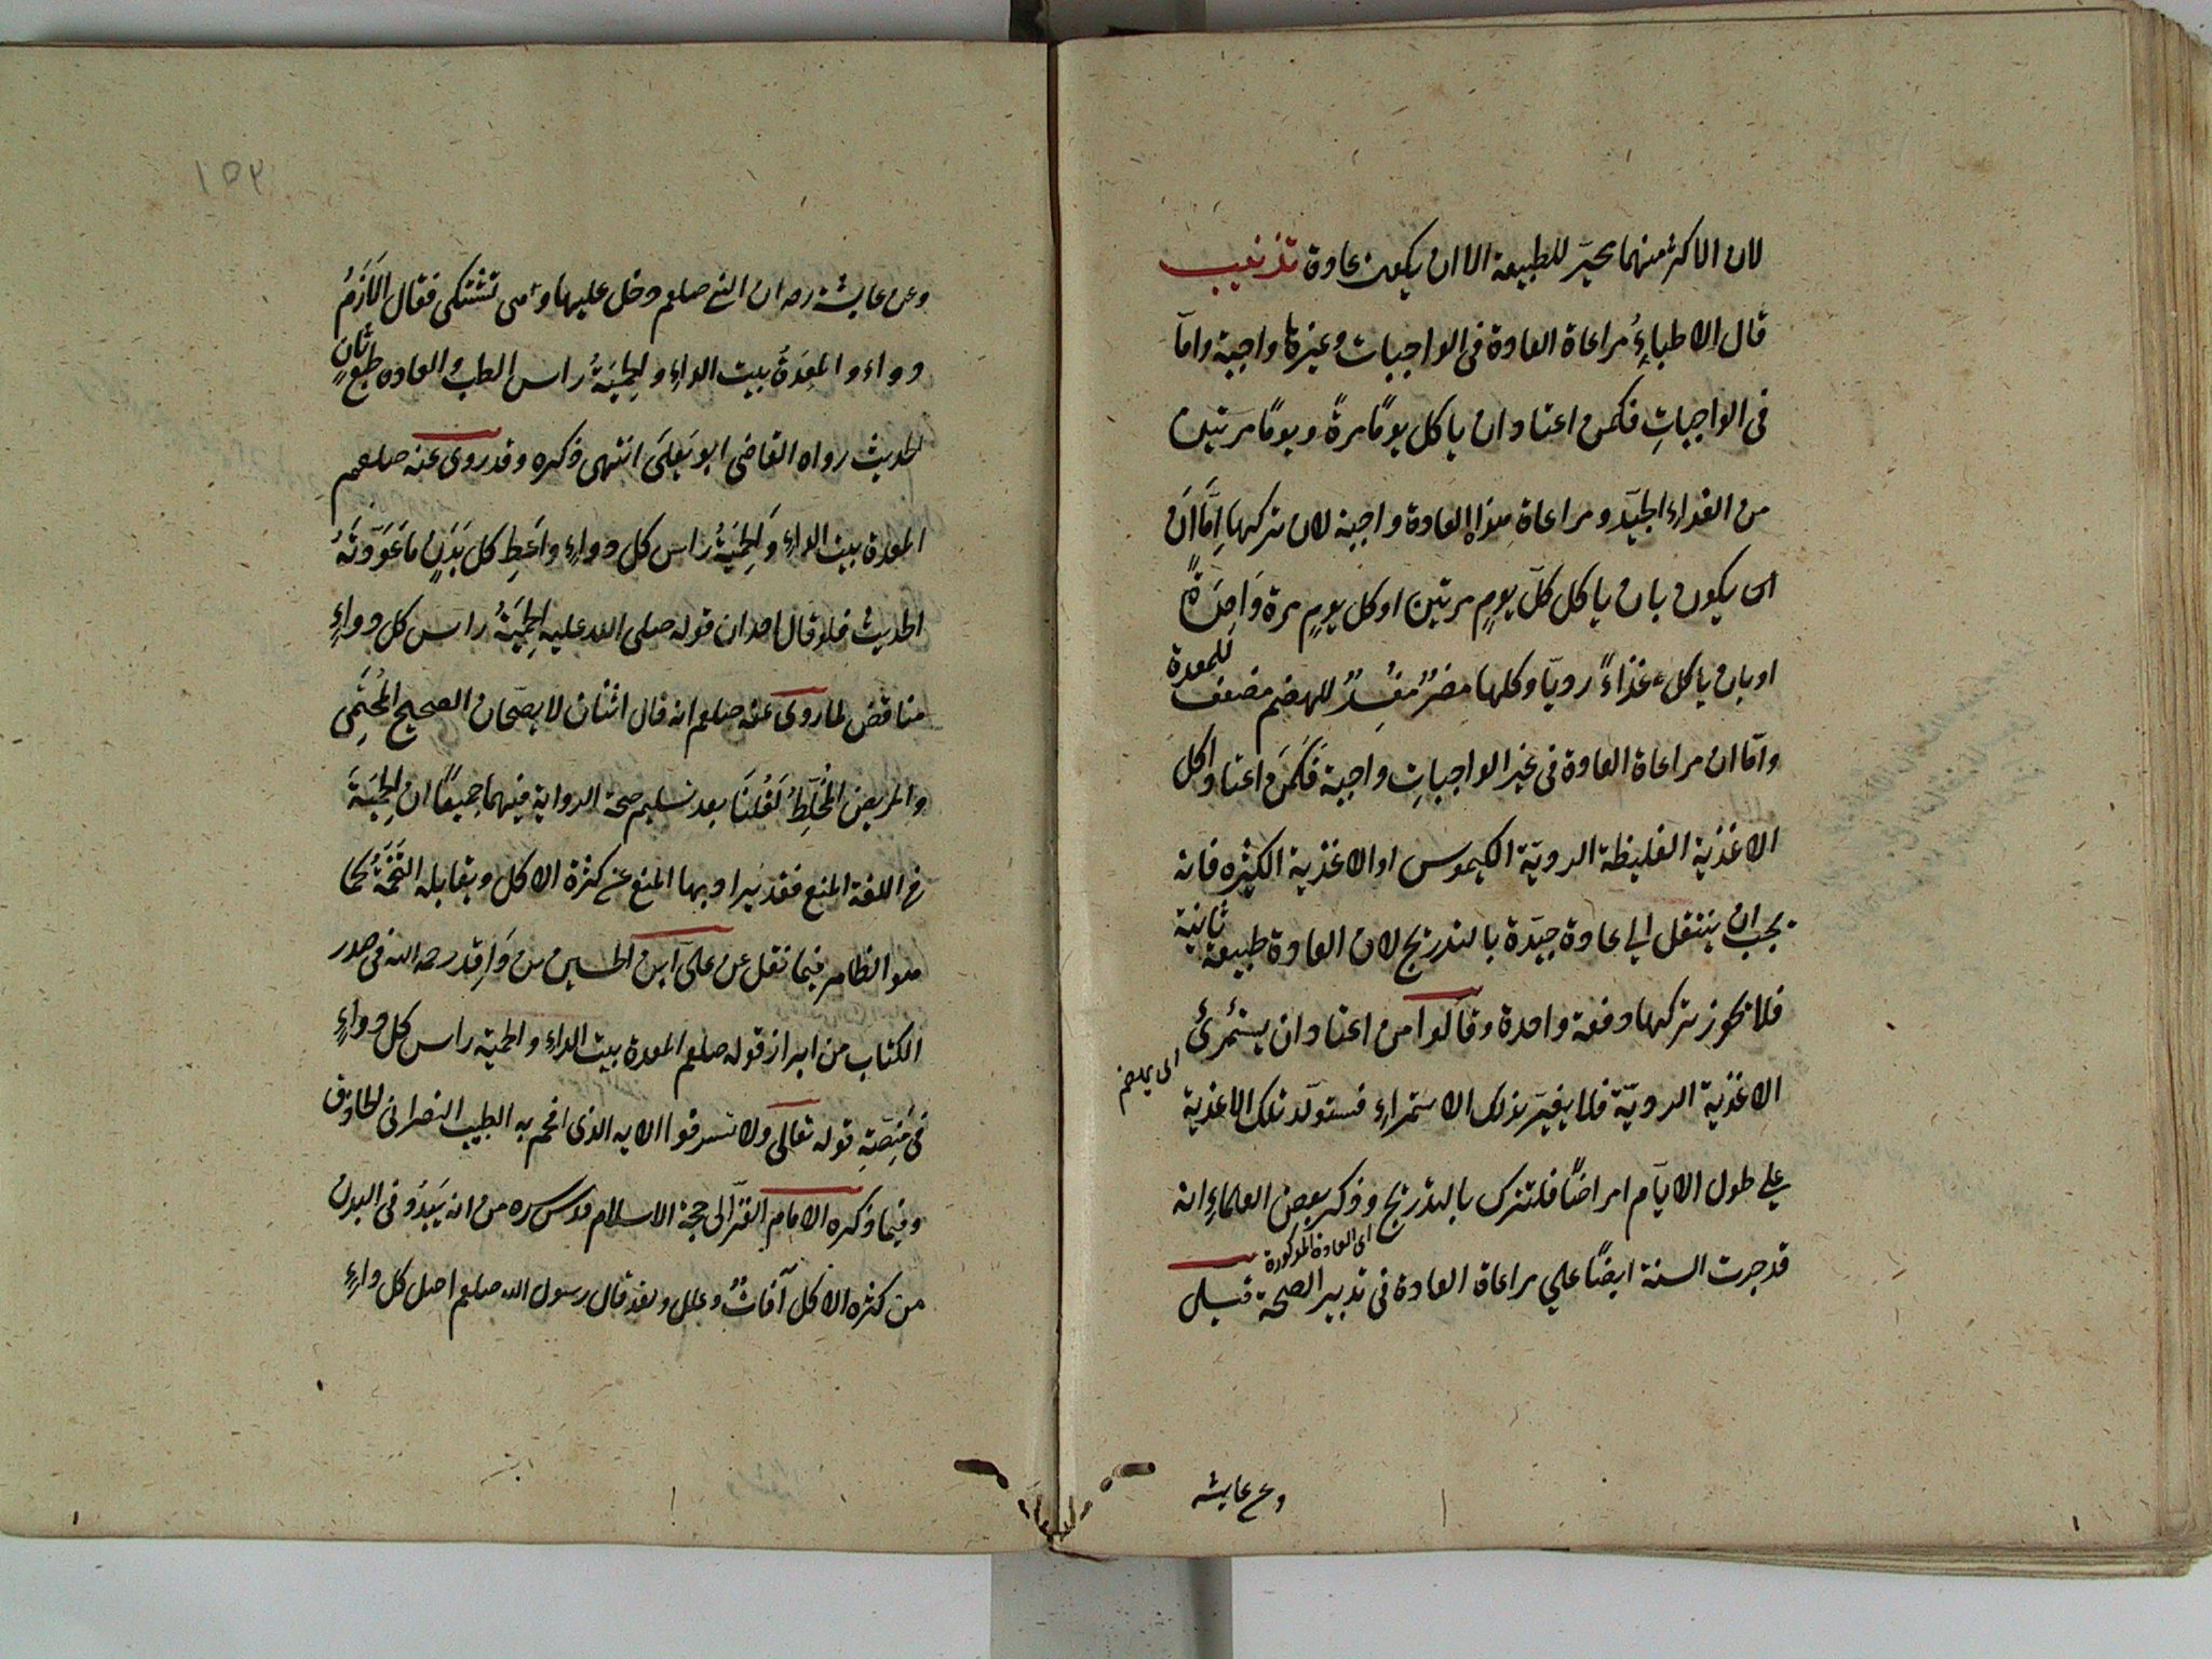 لان الاكثر منهما محير للطبيعة الا ان يكون عادة تذنيب
قال الاطباءُ مراعاة العادة فى الواجبات وغيرها واجبة واما
فى الواجباتِ فكمن اعتاد ان ياكل يومًا مرةً ويومًا مرتين
من الغداءِ الجيّد ومراعاة هذه العادة واجبة لان تركها اِمّا اَن
اى يكون بان ياكل كلّ يومٍ مرتين او كل يومٍ مرة وَاحِدَةً
او بان ياكل غذاءً رديّا وكلها مضرٌّ مفسِدٌ للهضم مضعف للمعدة
وامّا ان مراعاة العادة فى غير الواجباتِ واجبة فَكَمَن اعتاد اكل
الاغذية الغليظة الرديّة الكيموس او الاغذية الكثيره فانه
يجب ان ينتقل الى عادة جيّدة بالتدريج لان العادة طبيعة ثانية
فلا يجوز تركها دفعة واحدة وقالوا من اعتاد ان يستمرئ
اى يهضم
الاغذية الرديّة فلا يغيّر بذلك الاستمراءِ فستولّد تلك الاغذية
على طول الايّام امراضًا فلتترك بالتدريج وذكر بعض العلماءِ انه
اى العادة المذكورة
قد جرت السنة ايضًا على مراعاة العادة فى تدبير الصحة قيل
وعن عايشه
١٥٢
وعن عايشة رضه ان النبى صلعم دخل عليها وهى تشتكى فقال الاَزَمُ
دواء والمعِدَةُ بيت الداءِ والحِميَةُ راس الطب والعاده طبع ثانٍ
الحديث رواه القاضى ابو يَعلىَ انتهى ذكره وقد روى عنه صلعم
المعدة بيت الداءِ وَالحِميَةُ راس كل دواءٍ واَعطِ كل بَدَنٍ ما عَوَّدتَهُ
الحديث فلو قال احد ان قوله صلى الله عليه الحِميَةُ راس كل دواءٍ
مناقض لما روى عنه صلعم انه قال اثنان لا يصحّان الصحيح المُحتَمِى
والمريض المُخَلِّطُ لَقُلنَا بعد تسليم صحة الرواية فيهما جميعًا ان الحِميَةَ
فى اللغة المنع فقد يراد بها المنع عن كثرة الاكل ويقابله التُخَمَةُ كما
هو الظاهر فيما نقل عن علىّ ابن الحسين بن وَاقِد رحمه الله فى صدر
الكتاب من ابراز قوله صلعم المعدة بيت الداءِ والحمية راس كل دواءٍ
فى مِنَصّةِ قوله تعالى ولا تسرفوا الايه الذى افحم به الطبيب النصرانى الحاذق
وفيما ذكره الامام الغزّالى حجة الاسلام قدس سره من انه يَبدُو فى البدن
من كثره الاكل آفاتٌ وعلل ولقد قال رسول الله صلعم اصل كل داءٍ